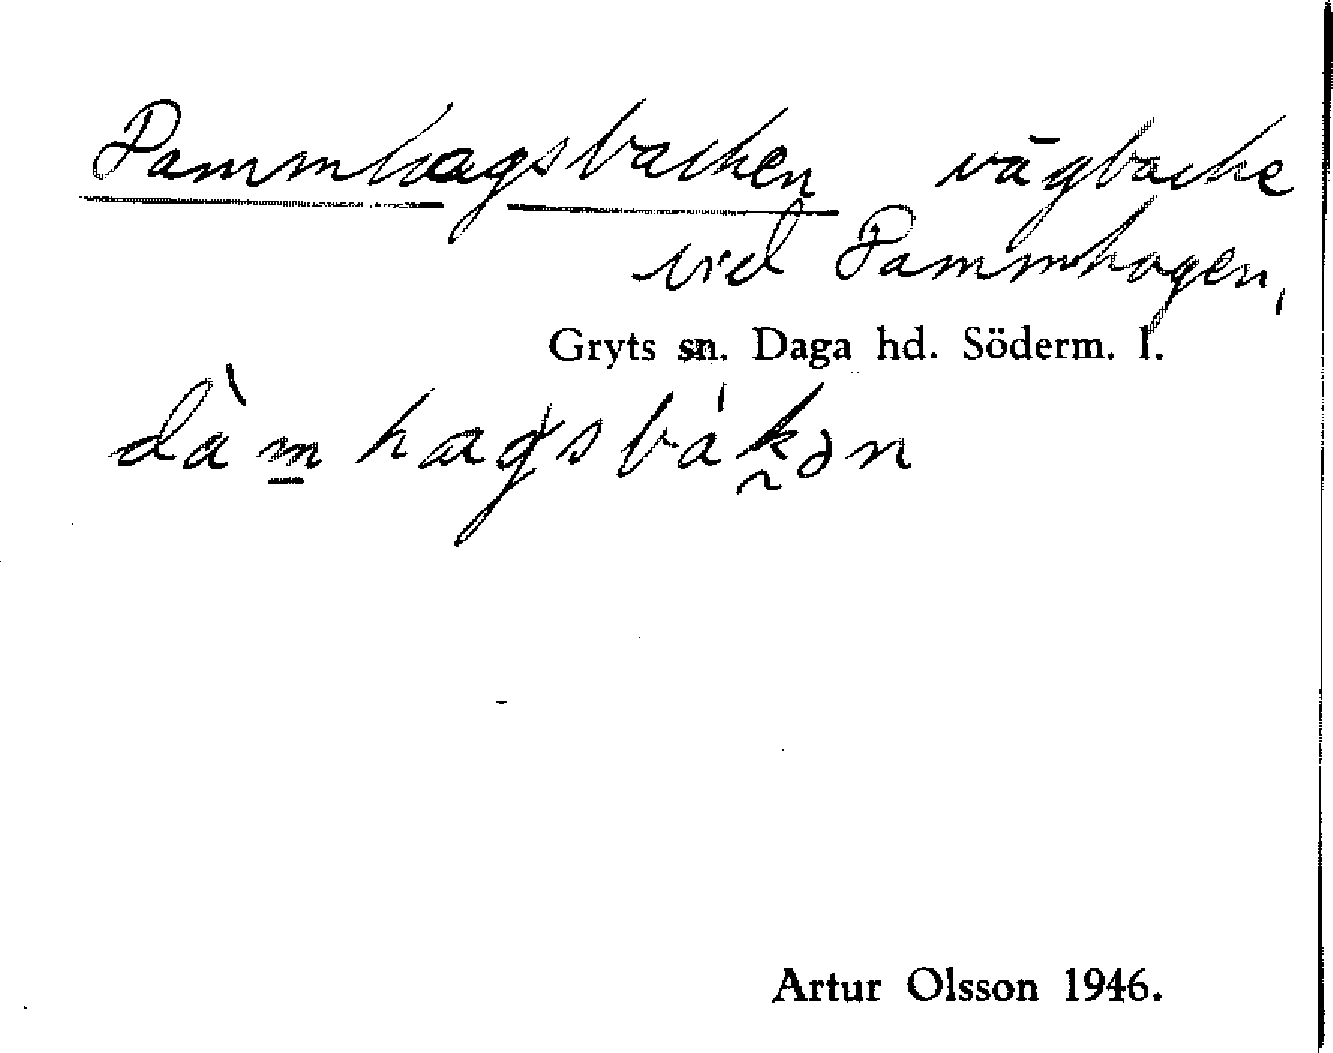 Dammhagsbacken vägbacke
vid Dammhagen,
Gryts sn. Daga hd. Söderm. l.
dàm̲hagsbákən
Artur Olsson 1946.